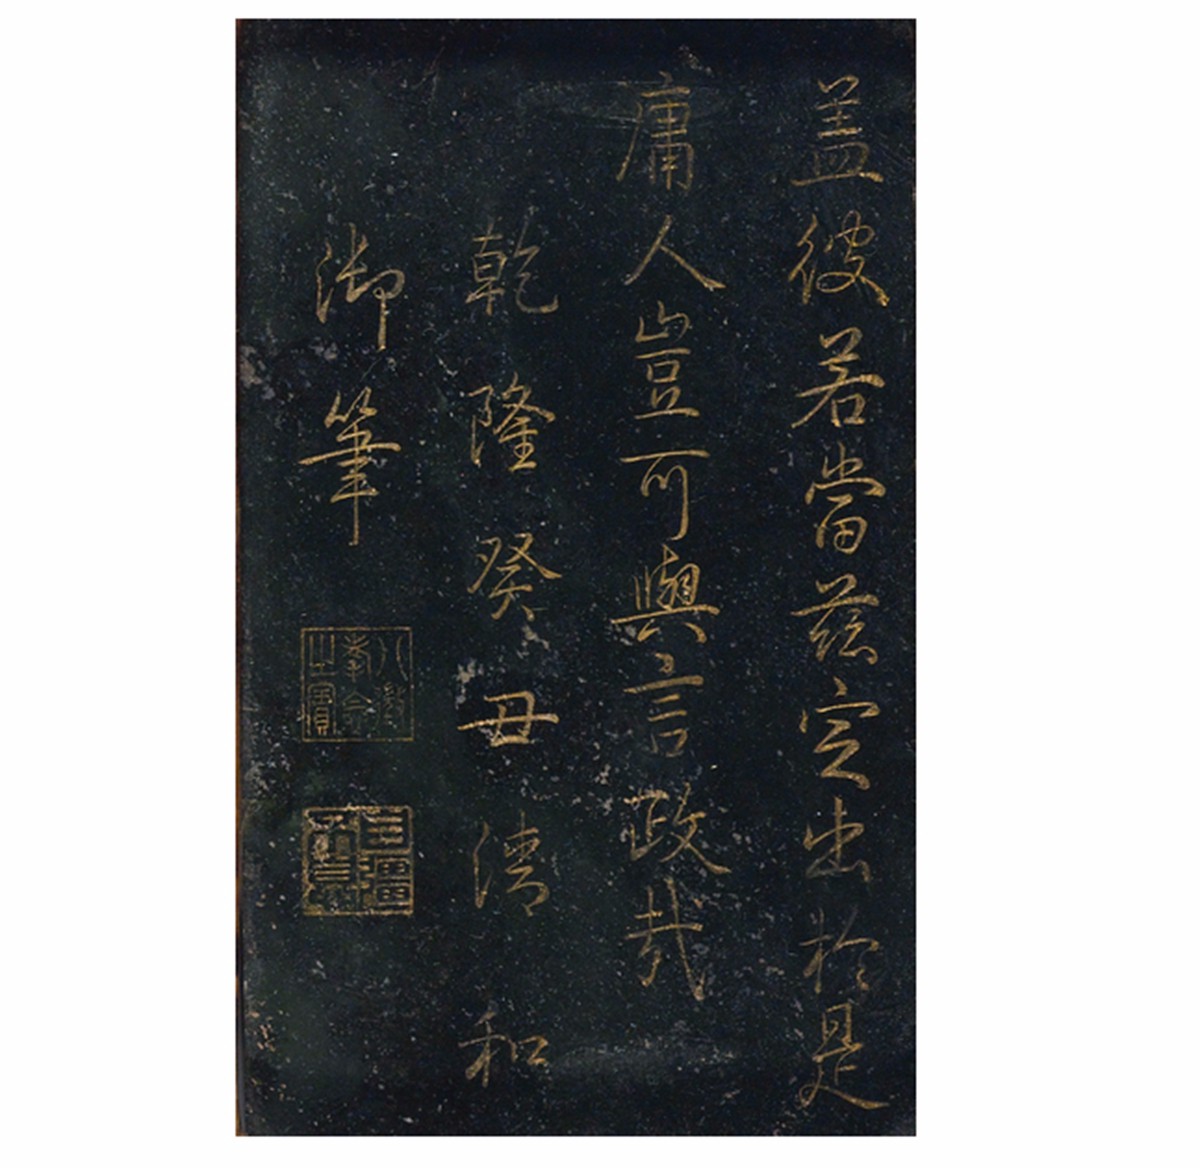 盖彼若當茲定出於是
庸人豈可與言政哉
乾隆癸丑清和
御筆
八徵耄念之寶
自彊不息